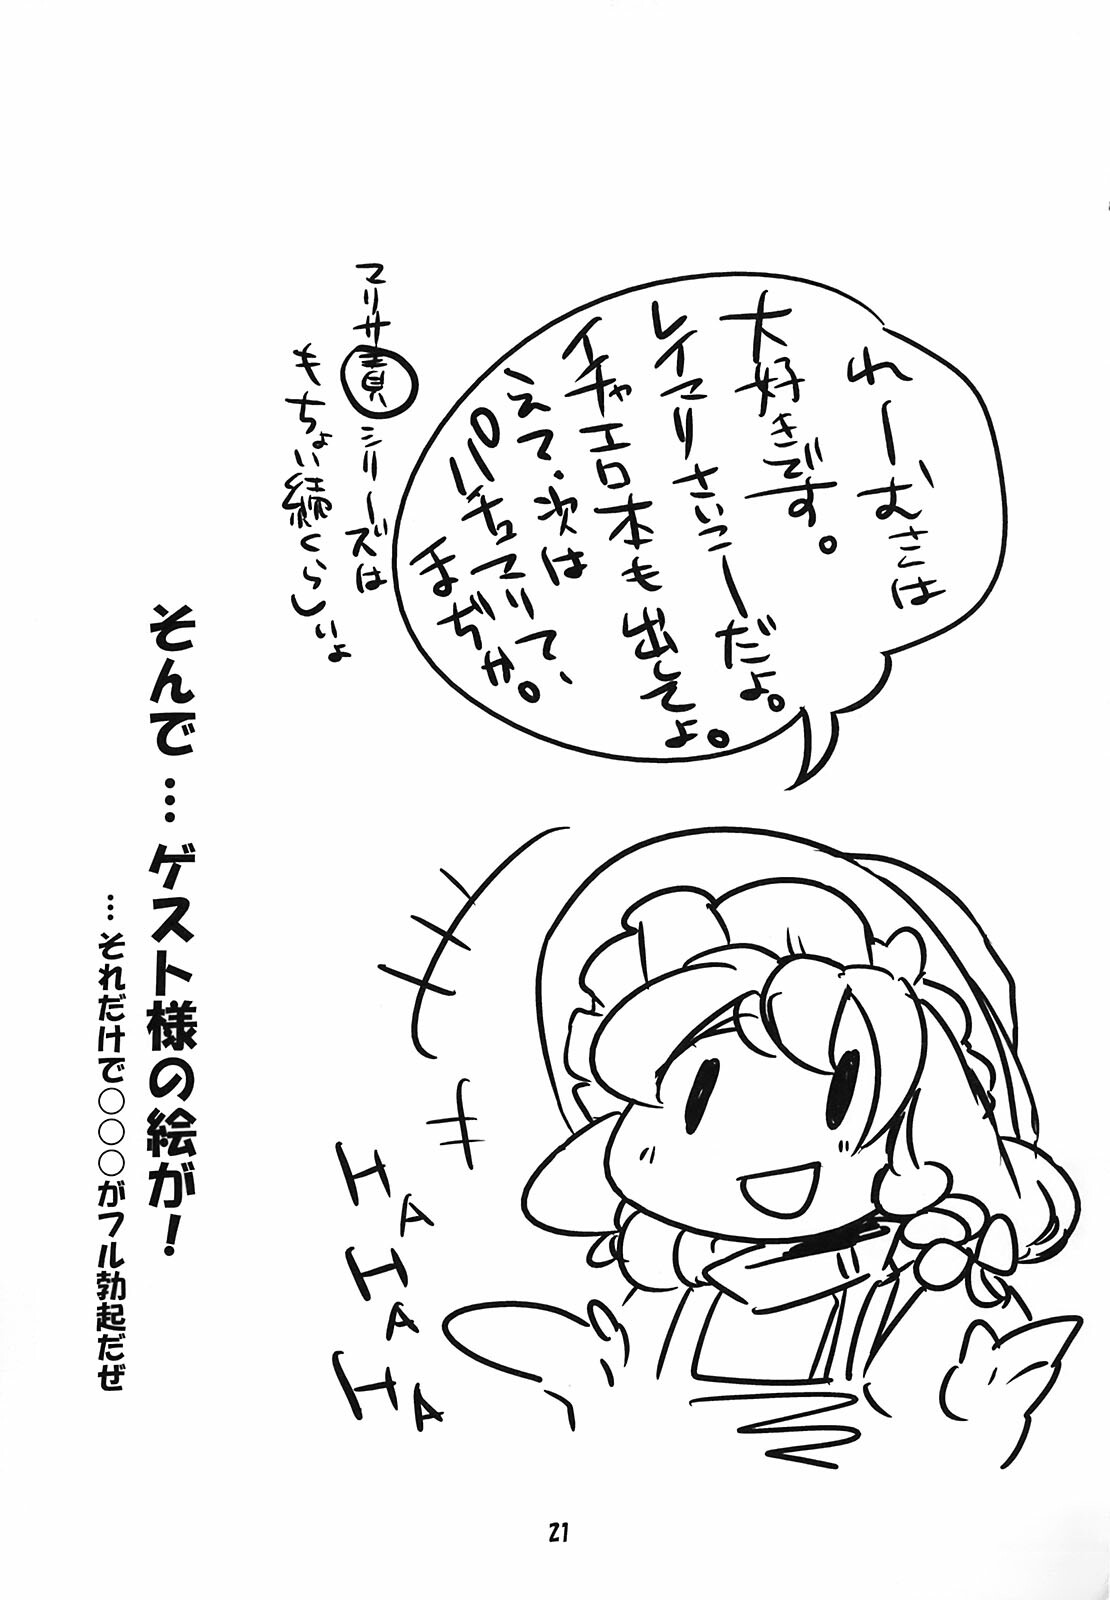 れーむさは
大好きです。
レイマリさいこーだよ。
イチャエロ本も出してよ。
えて、次は
パチュマリて、
まぢゃ。
マリサ責シリーズは
もちょい続くらしいよ
HA
HA
HA
そんで…ゲスト様の絵が！
…それだけで○○○がフル勃起だぜ
21